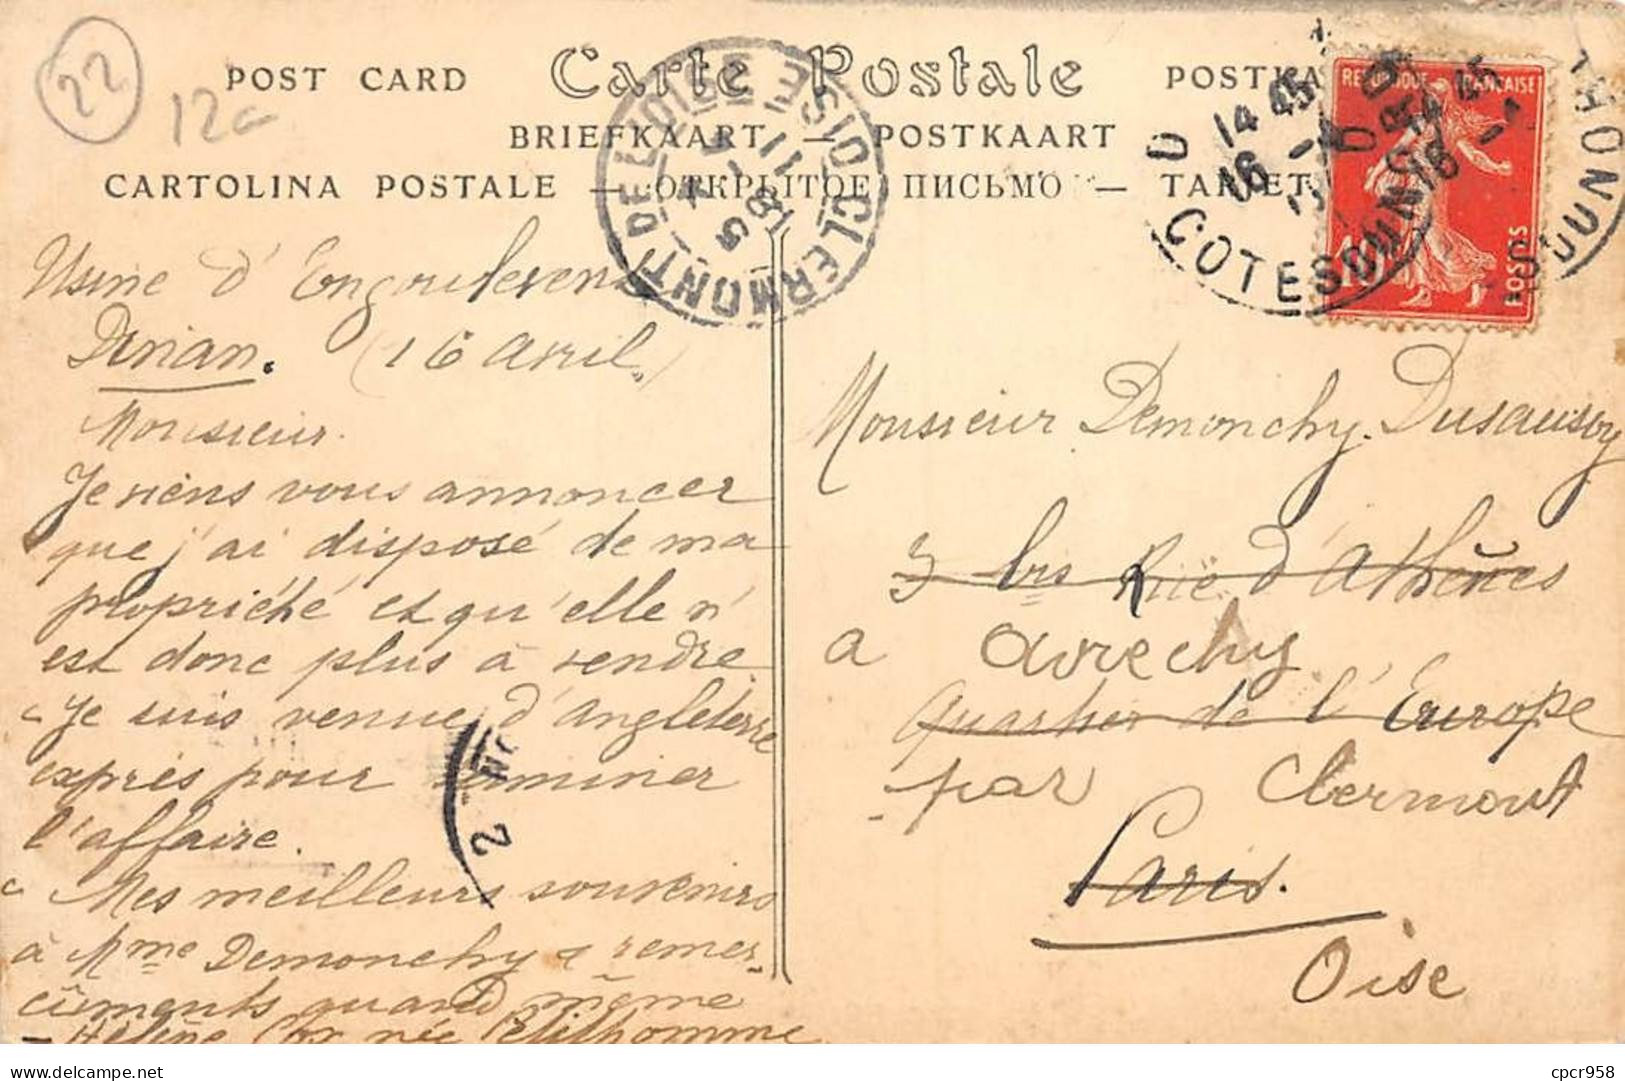 22
12c
POST CARD
Carte Postale
POSTKA
BRIEFKAART — POSTKAART
CARTOLINA POSTALE — ОТКРЫТОЕ ПИСЬМО — TARJET
CLERMONT DE L'OISE OISE
11
18 - 4
5
14 45
16 - 4
DINAN COTES DU NORD
14 45
16 - 4
COTES DU NORD
REPUBLIQUE FRANÇAISE
10
POSTES
Usine d'Engoulevent
Dinan. (16 Avril.)
Monsieur.
Je viens vous annoncer
que j'ai disposé de ma
propriété et qu'elle n'
est donc plus à vendre.
Je suis venue d'Angleterre
exprès pour terminer
l'affaire.
Mes meilleurs souvenirs
à Mme Demonchy & remer-
ciments quand même
— Hélène Cox née Petithomme
2
Monsieur Demonchy. Dusaussoy
3 bis Rue d'Athènes
a Avrechy
Quartier de l'Europe
par Clermont
Paris.
Oise
cpcr958